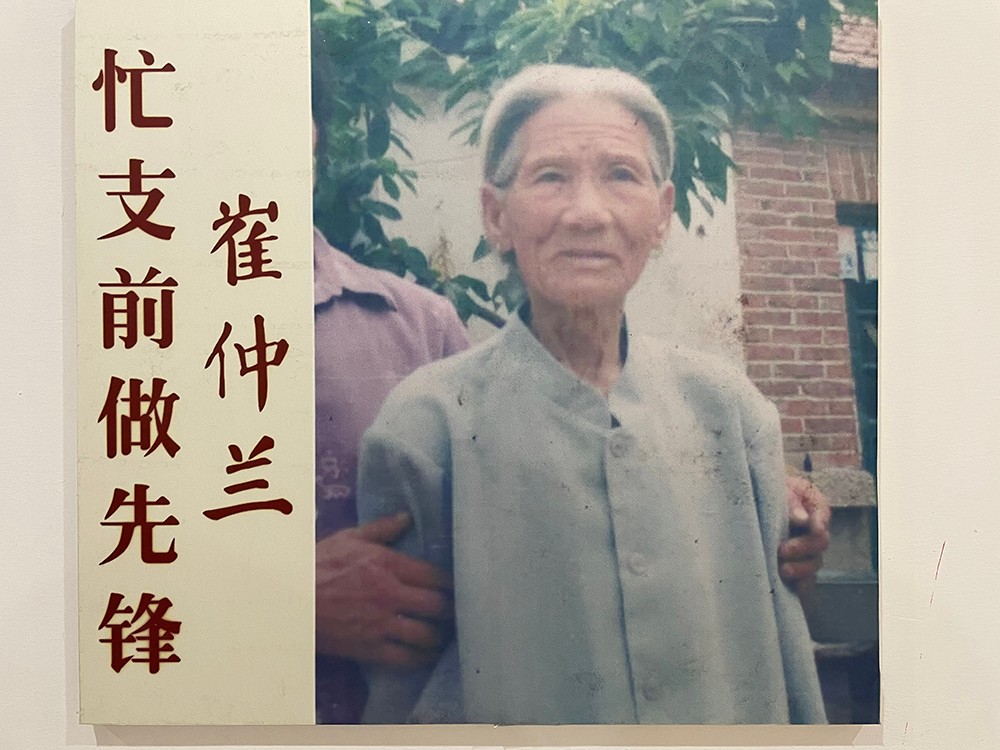 忙支前做先锋
崔仲兰